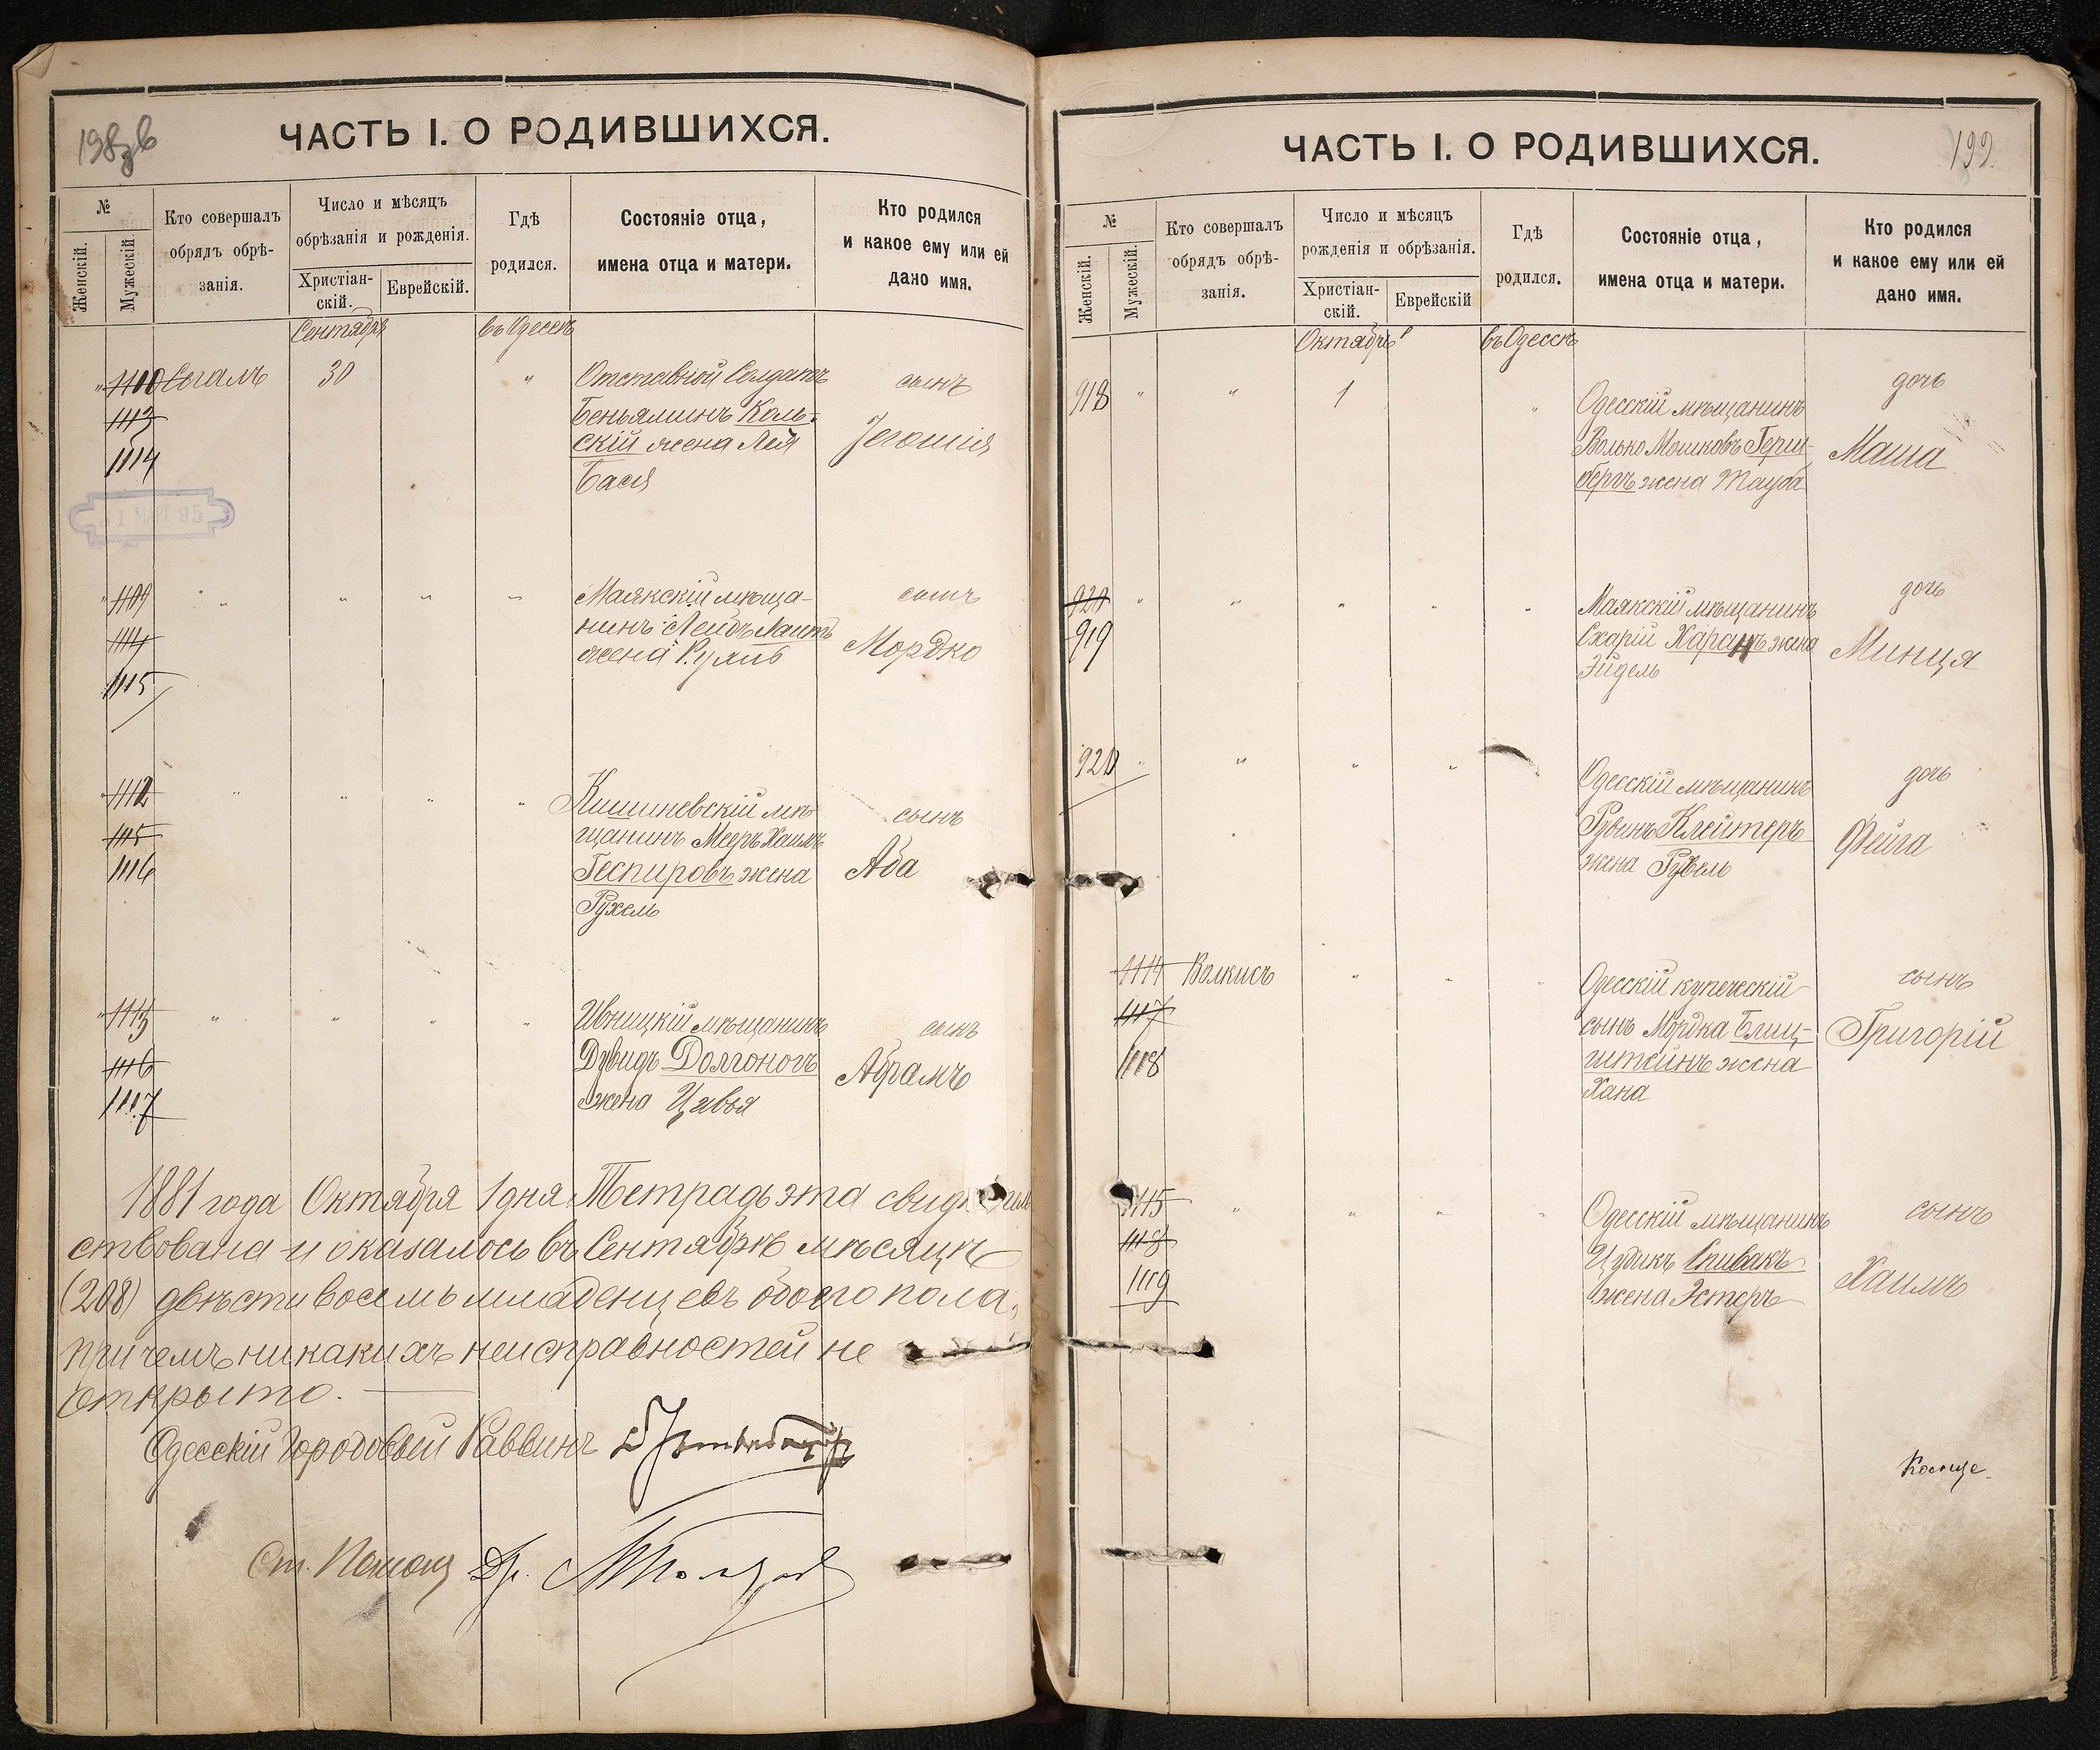 198 зв
ЧАСТЬ I. О РОДИВШИХСЯ.
№
Женскій.
Мужескій.
Кто совершалъ
обрядъ обрѣ-
занія.
Число и мѣсяцъ
обрѣзанія и рожденія.
Христіан-
скій.
Еврейскій.
Гдѣ
родился.
Состояніе отца,
имена отца и матери.
Кто родился
и какое ему или ей
дано имя.
Сентября въ Одессѣ
" 1110 Сегалъ 30 " Отставной Солдатъ сынъ
1113 Беньяминъ Коль-
1114 скій жена Лея Іегошія
Бася
31 МАР. 95
" " " " " Маякскій мѣща- сынъ
1114 нинъ Лейбъ жена Мордко
1115
" 1112 " " " " Кишиневскій мѣ- сынъ
1115 щанинъ Мееръ Хаимъ
1116 Геспировъ жена Аба
Рухель
" 1113 " " " " Ивницкій мѣщанинъ сынъ
1116 Дувидъ Долгоногъ Абрамъ
1117 жена Цивья
1881 года Октября 1 дня Тетрадь эта свидѣтель
ствована и оказалось въ Сентябрѣ мѣсяцѣ
(208) двѣсти восемь младенцевъ обоего пола,
причемъ никакихъ неисправностей не
открыто.
Одесскій Городовой Раввинъ
Ст. Помощ Др.
ЧАСТЬ I. О РОДИВШИХСЯ.
199
№
Женскій.
Мужескій.
Кто совершалъ
обрядъ обрѣ-
занія.
Число и мѣсяцъ
рожденія и обрѣзанія.
Христіан-
скій.
Еврейскій
Гдѣ
родился.
Состояніе отца,
имена отца и матери.
Кто родился
и какое ему или ей
дано имя.
Октябрь въ Одессѣ
918 " " 1 " Одесскій мѣщанинъ дочь
Волько Мошковъ Герш-
бергъ жена Тауба Маша
920 " " " " " Маякскій мѣщанинъ дочь
919 Схарій Харанъ жена Минця
Эйдель
920 " " " " Одесскій мѣщанинъ дочь
Рувинъ Клейтеръ Фейга
жена
1114 Волкисъ " " " Одесскій купеческій сынъ
1117 сынъ Мордка Блиц- Григорій
1118 штейнъ жена
Хана
1115 " " " " Одесскій мѣщанинъ сынъ
1118 Ицикъ Спивакъ
1119 жена Эстеръ Хаимъ